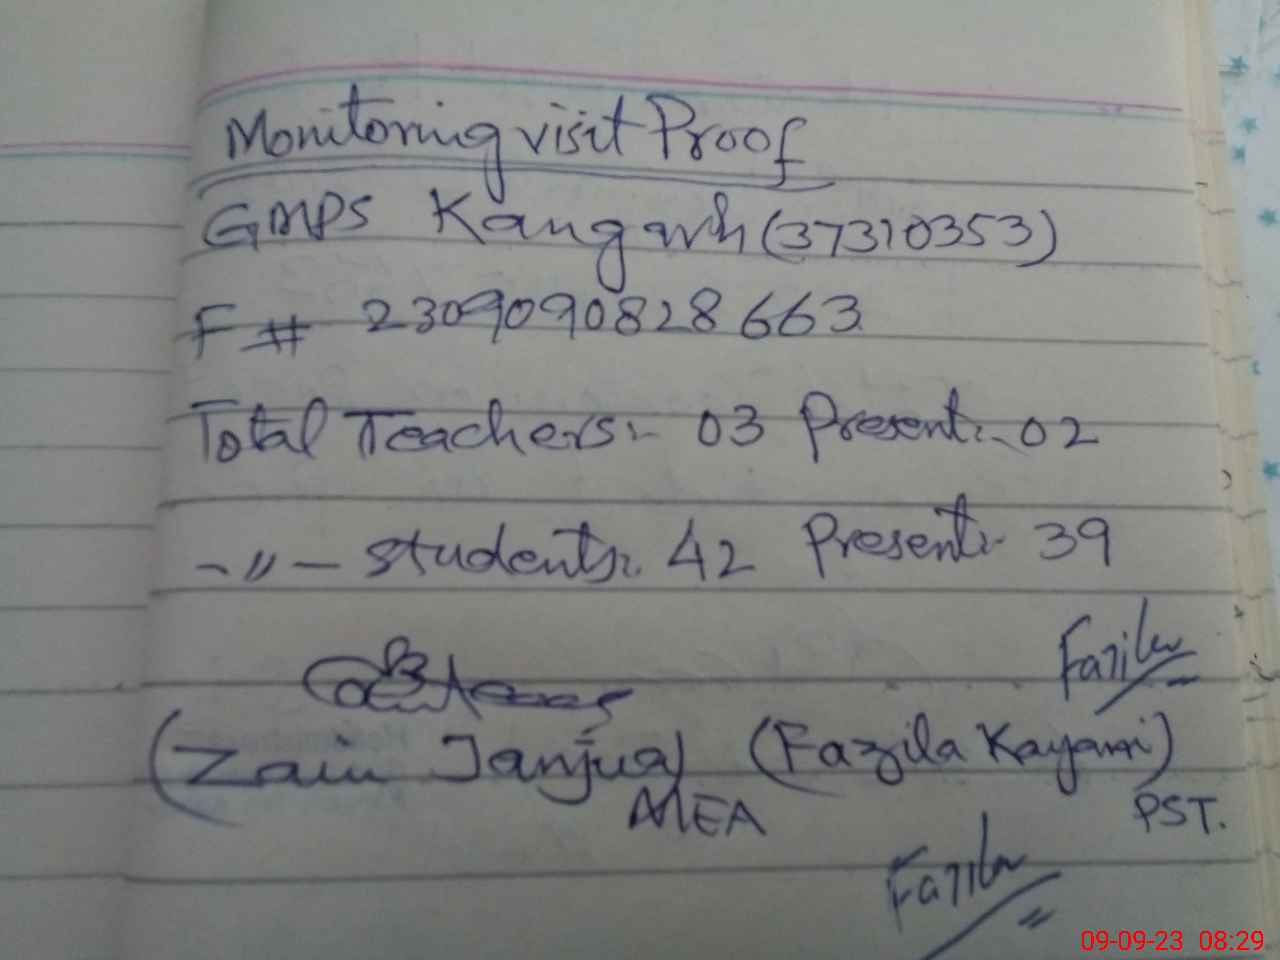 Monitoring visit Proof
GMPS Kangarh (37310353)
F # 2309090828663
Total Teachers:- 03 Present:- 02
-〃- students:- 42 Present:- 39
Fazila
(Zain Janjua) (Fazila Kayani)
AMEA PST.
Fazila
09-09-23 08:29